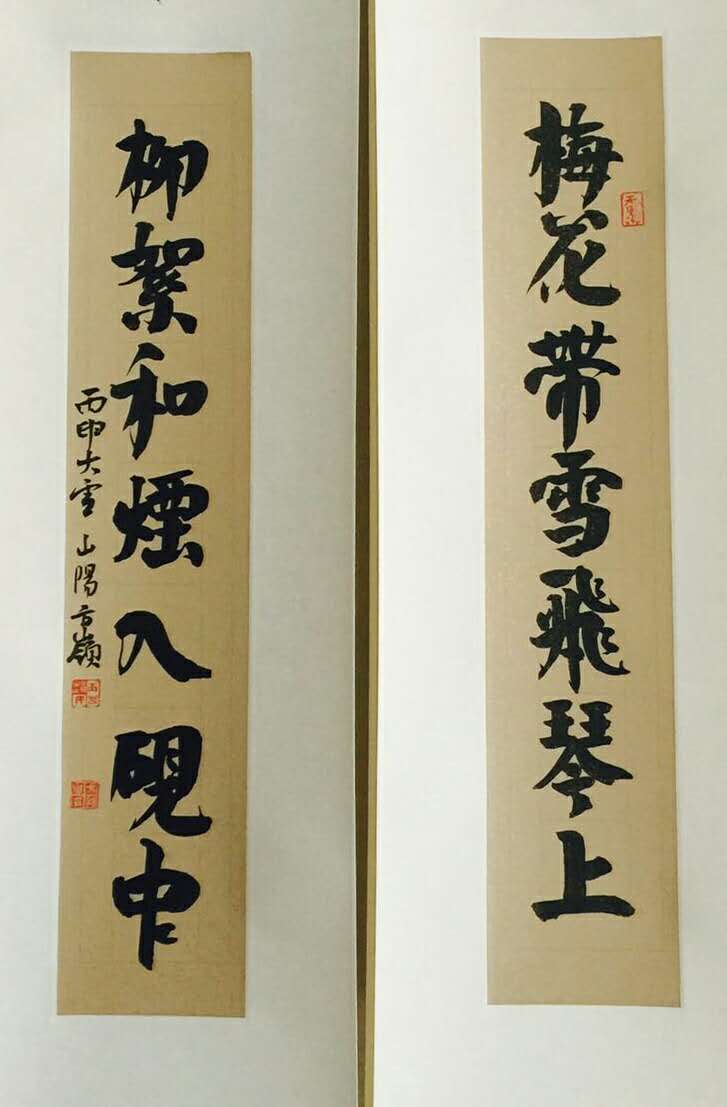 梅花帶雪飛琴上
柳絮和煙入硯中
丙申大雪山陽方嶺